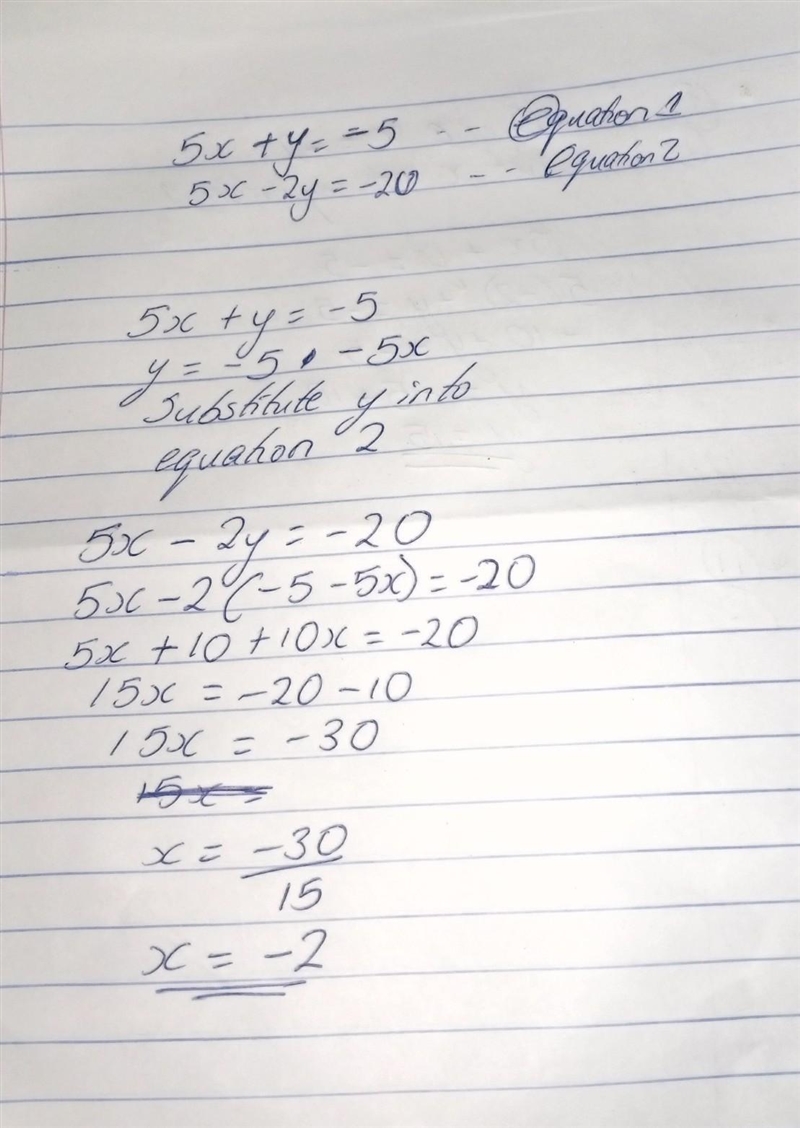 5x + y = -5 -- equation 1
5x - 2y = -20 -- equation 2
5x + y = -5
y = -5 - 5x
Substitute y into
equation 2
5x - 2y = -20
5x - 2(-5 - 5x) = -20
5x + 10 + 10x = -20
15x = -20 - 10
15x = -30
15x =
x = -30
15
x = -2